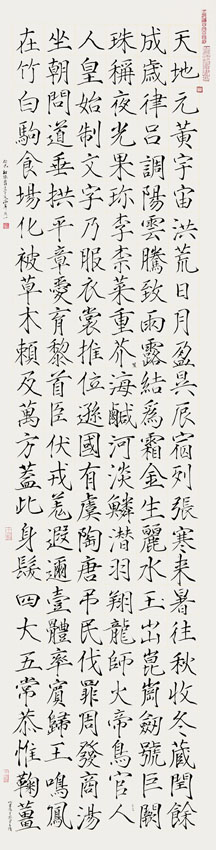 天地元黃宇宙洪荒日月盈昃辰宿列張寒来暑往秋收冬藏閏餘
成歲律呂調陽雲騰致雨露結為霜金生麗水玉出崑崗劍號巨闕
珠稱夜光果珍李柰菜重芥海鹹河淡鱗潛羽翔龍師火帝鳥官人
人皇始制文字乃服衣裳推位遜國有虞陶唐弔民伐罪周發商湯
坐朝問道垂拱平章愛育黎首臣伏戎羌遐邇壹體率賓歸王鳴鳳
在竹白駒食場化被草木賴及萬方蓋此身髮四大五常恭惟鞠薑